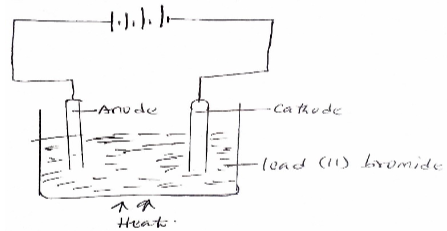 Anode
Cathode
lead (11) bromide
Heat.